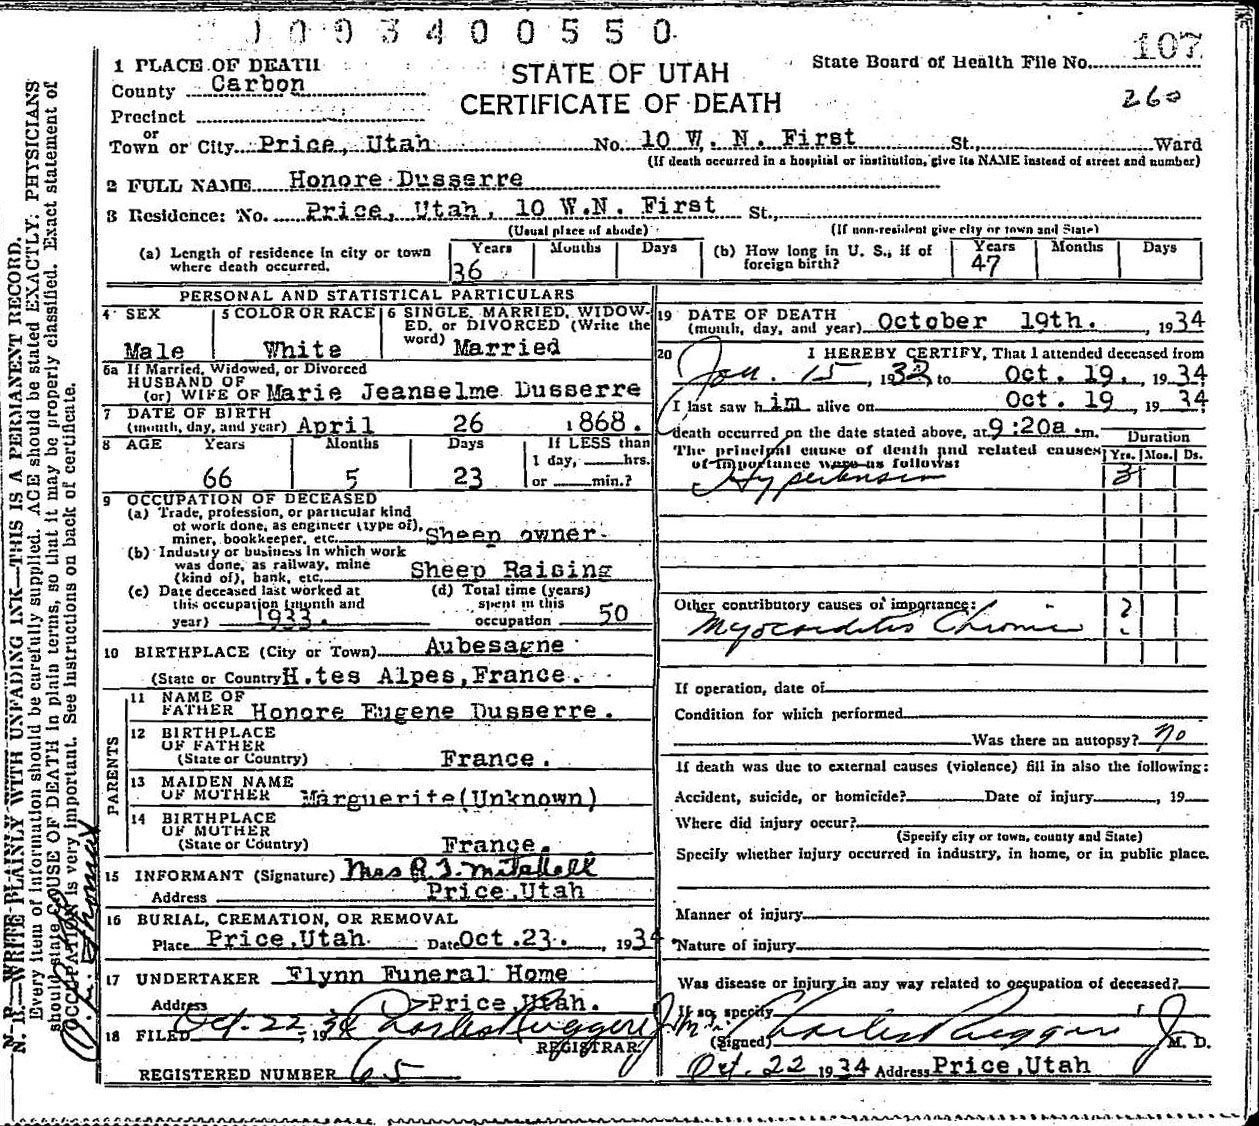 1 0 0 3 4 0 0 5 5 0
107
1 PLACE OF DEATH
County Carbon
Precinct
or
Town or City Price, Utah No. 10 W. N. First St., Ward
STATE OF UTAH
CERTIFICATE OF DEATH
State Board of Health File No.
260
(If death occurred in a hospital or institution, give its NAME instead of street and number)
2 FULL NAME Honore Dusserre
3 Residence: No. Price, Utah, 10 W.N. First St.,
(Usual place of abode) (If non-resident give city or town and State)
(a) Length of residence in city or town where death occurred. Years 36 Months Days
(b) How long in U. S., if of foreign birth? Years 47 Months Days
PERSONAL AND STATISTICAL PARTICULARS
4 SEX Male
5 COLOR OR RACE White
6 SINGLE, MARRIED, WIDOWED, or DIVORCED (Write the word) Married
6a If Married, Widowed, or Divorced
HUSBAND OF
(or) WIFE OF Marie Jeanselme Dusserre
7 DATE OF BIRTH
(month, day, and year) April 26 1868.
8 AGE Years Months Days If LESS than
66 5 23 1 day, hrs.
or min.?
9 OCCUPATION OF DECEASED
(a) Trade, profession, or particular kind
of work done, as engineer (type of),
miner, bookkeeper, etc. Sheep owner
(b) Industry or business in which work
was done, as railway, mine
(kind of), bank, etc. Sheep Raising
(c) Date deceased last worked at
this occupation (month and
year) 1933.
(d) Total time (years)
spent in this
occupation 50
10 BIRTHPLACE (City or Town) Aubesagne
(State or Country H.tes Alpes, France.
PARENTS
11 NAME OF
FATHER Honore Eugene Dusserre.
12 BIRTHPLACE
OF FATHER
(State or Country) France.
13 MAIDEN NAME
OF MOTHER Marguerite (Unknown)
14 BIRTHPLACE
OF MOTHER
(State or Country) France.
15 INFORMANT (Signature) Mrs R. J. Mitchell
Address Price, Utah
16 BURIAL, CREMATION, OR REMOVAL
Place Price, Utah Date Oct. 23. , 1934
17 UNDERTAKER Flynn Funeral Home
Address Price, Utah.
18 FILED Oct. 22, 1934 Charles Ruggeri Jr.
REGISTRAR
REGISTERED NUMBER 65
19 DATE OF DEATH
(month, day, and year) October 19th. , 1934
20 I HEREBY CERTIFY, That I attended deceased from
Jan. 15, 1932 to Oct. 19. , 1934
I last saw him alive on Oct. 19 , 1934
death occurred on the date stated above, at 9:20a.m.
Duration
Yrs. Mos. Ds.
The principal cause of death and related causes
of importance were as follows:
Hypertension 3
Other contributory causes of importance:
Myocarditis Chronic ?
If operation, date of
Condition for which performed
Was there an autopsy? no
If death was due to external causes (violence) fill in also the following:
Accident, suicide, or homicide? Date of injury , 19
Where did injury occur?
(Specify city or town, county and State)
Specify whether injury occurred in industry, in home, or in public place.
Manner of injury
Nature of injury
Was disease or injury in any way related to occupation of deceased?
If so, specify
(Signed) Charles Ruggeri Jr. M. D.
Oct. 22 1934 Address Price, Utah
N. B.—WRITE PLAINLY WITH UNFADING INK—THIS IS A PERMANENT RECORD.
Every item of information should be carefully supplied. AGE should be stated EXACTLY. PHYSICIANS
should state CAUSE OF DEATH in plain terms, so that it may be properly classified. Exact statement of
OCCUPATION is very important. See instructions on back of certificate.